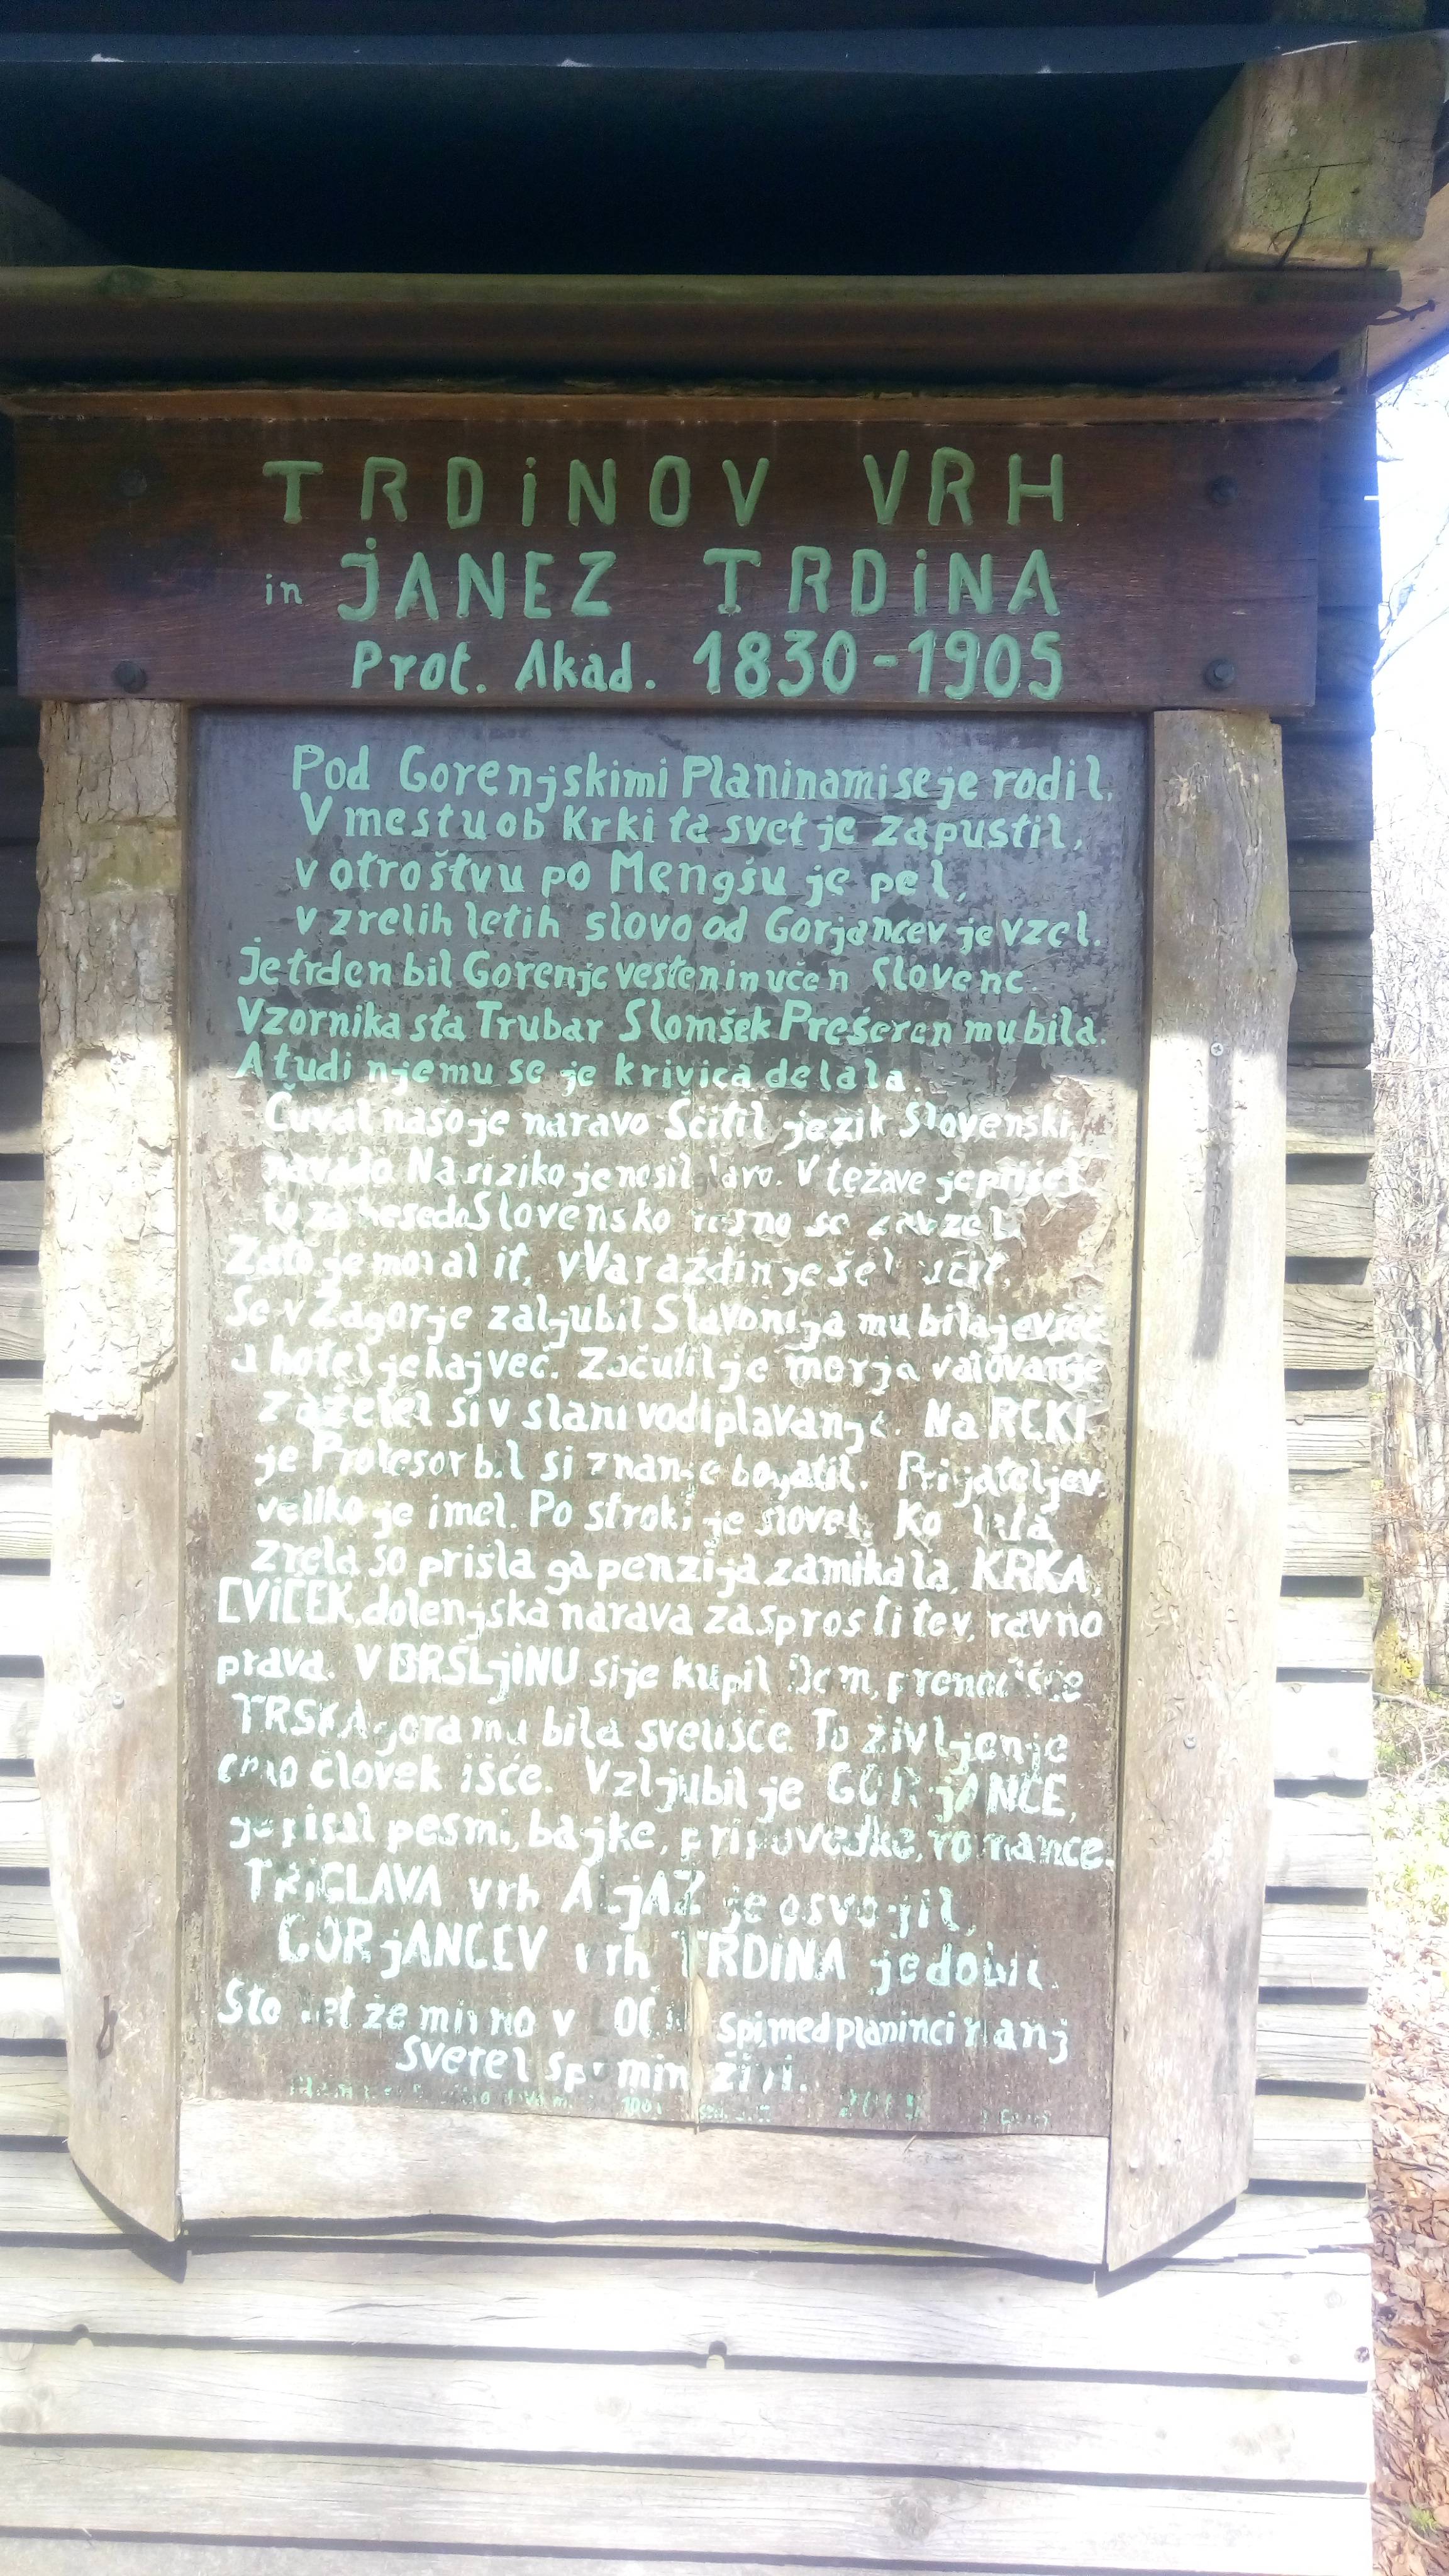 TRDiNOV VRH
in JANEZ TRDiNA
Prof. Akad. 1830-1905
Pod Gorenjskimi Planinami se je rodil,
V mestu ob Krki ta svet je zapustil,
v otroštvu po Mengšu je pel,
v zrelih letih slovo od Gorjancev je vzel.
Je trden bil Gorenjc vesten in učen Slovenc.
Vzornika sta Trubar Slomšek Prešeren mu bila.
A tudi njemu se je krivica delala.
Čuval našo je naravo Ščitil jezik Slovenski,
navado Na riziko je nosil. V težave je prišel
ko za besedo Slovensko resno se zavzel
Zato je moral it, v Varaždin je šel učit,
Se v Zagorje zaljubil Slavonija mu bila je všeč
a hotel je kaj več. Začutil je morja valovanje
Zaželel si v slani vodi plavanje. Na REKI
je Profesor bil si znanje bogatil. Prijateljev
veliko je imel. Po stroki je slovel. Ko leta
zrela so prišla ga penzija zamikala, KRKA,
CViČEK, dolenjska narava za sprostitev, ravno
prava. V BRŠLjiNU si je kupil Dom, prenočišče
TRŠKA gora mu bila svetišče To življenje
človek išče. Vzljubil je GORjANCE,
je pisal pesmi, bajke, pripovedke, romance.
TRiGLAVA vrh ALjAŽ je osvojil,
GORjANCEV vrh TRDiNA je dobil.
Sto let že mirno v spi, med planinci nanj
svetel spomin živi.